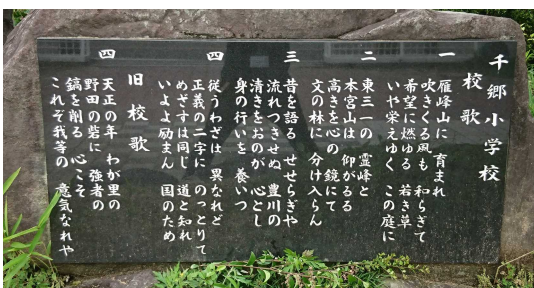 千郷小学校
校歌
一
雁峰山に 育まれ
吹きくる風も 和らぎて
希望に燃ゆる 若き草
いや栄えゆく この庭に
二
東三一の 霊峰と
本宮山は 仰がるる
高きを心の 鏡にて
文の林に 分け入らん
三
昔を語る せせらぎや
流れつきせぬ 豊川の
清きをおのが 心とし
身の行いを 養いつ
四
従うわざは 異なれど
正義の二字に のっとりて
めざすは同じ 道と知れ
いよよ励まん 国のため
旧校歌
四
天正の年 わが里の
野田の砦に 強者の
鎬を削る 心こそ
これぞ我等の 意気なれや